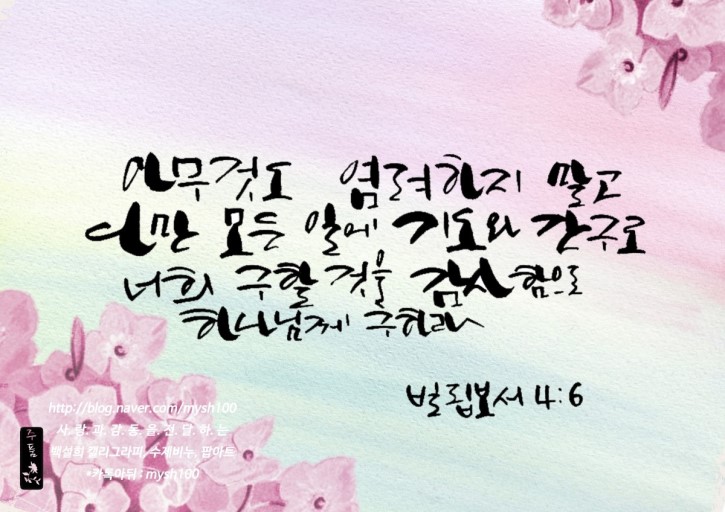 아무것도 염려하지 말고
다만 모든 일에 기도와 간구로
너희 구할 것을 감사함으로
하나님께 구하라
빌립보서 4:6
http://blog.naver.com/mysh100
사.랑.과.감.동.을.전.달.하.는
백설희 캘리그라피, 수제비누, 팝아트
*카톡아뒤 : mysh100